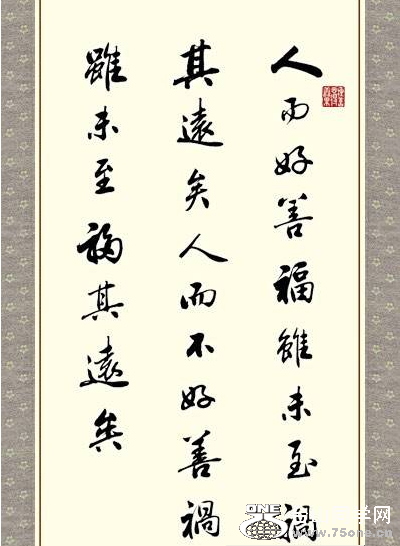 人而好善福雖未至禍
其遠矣人而不好善禍
雖未至福其遠矣
ONE
学网
www.75one.cn